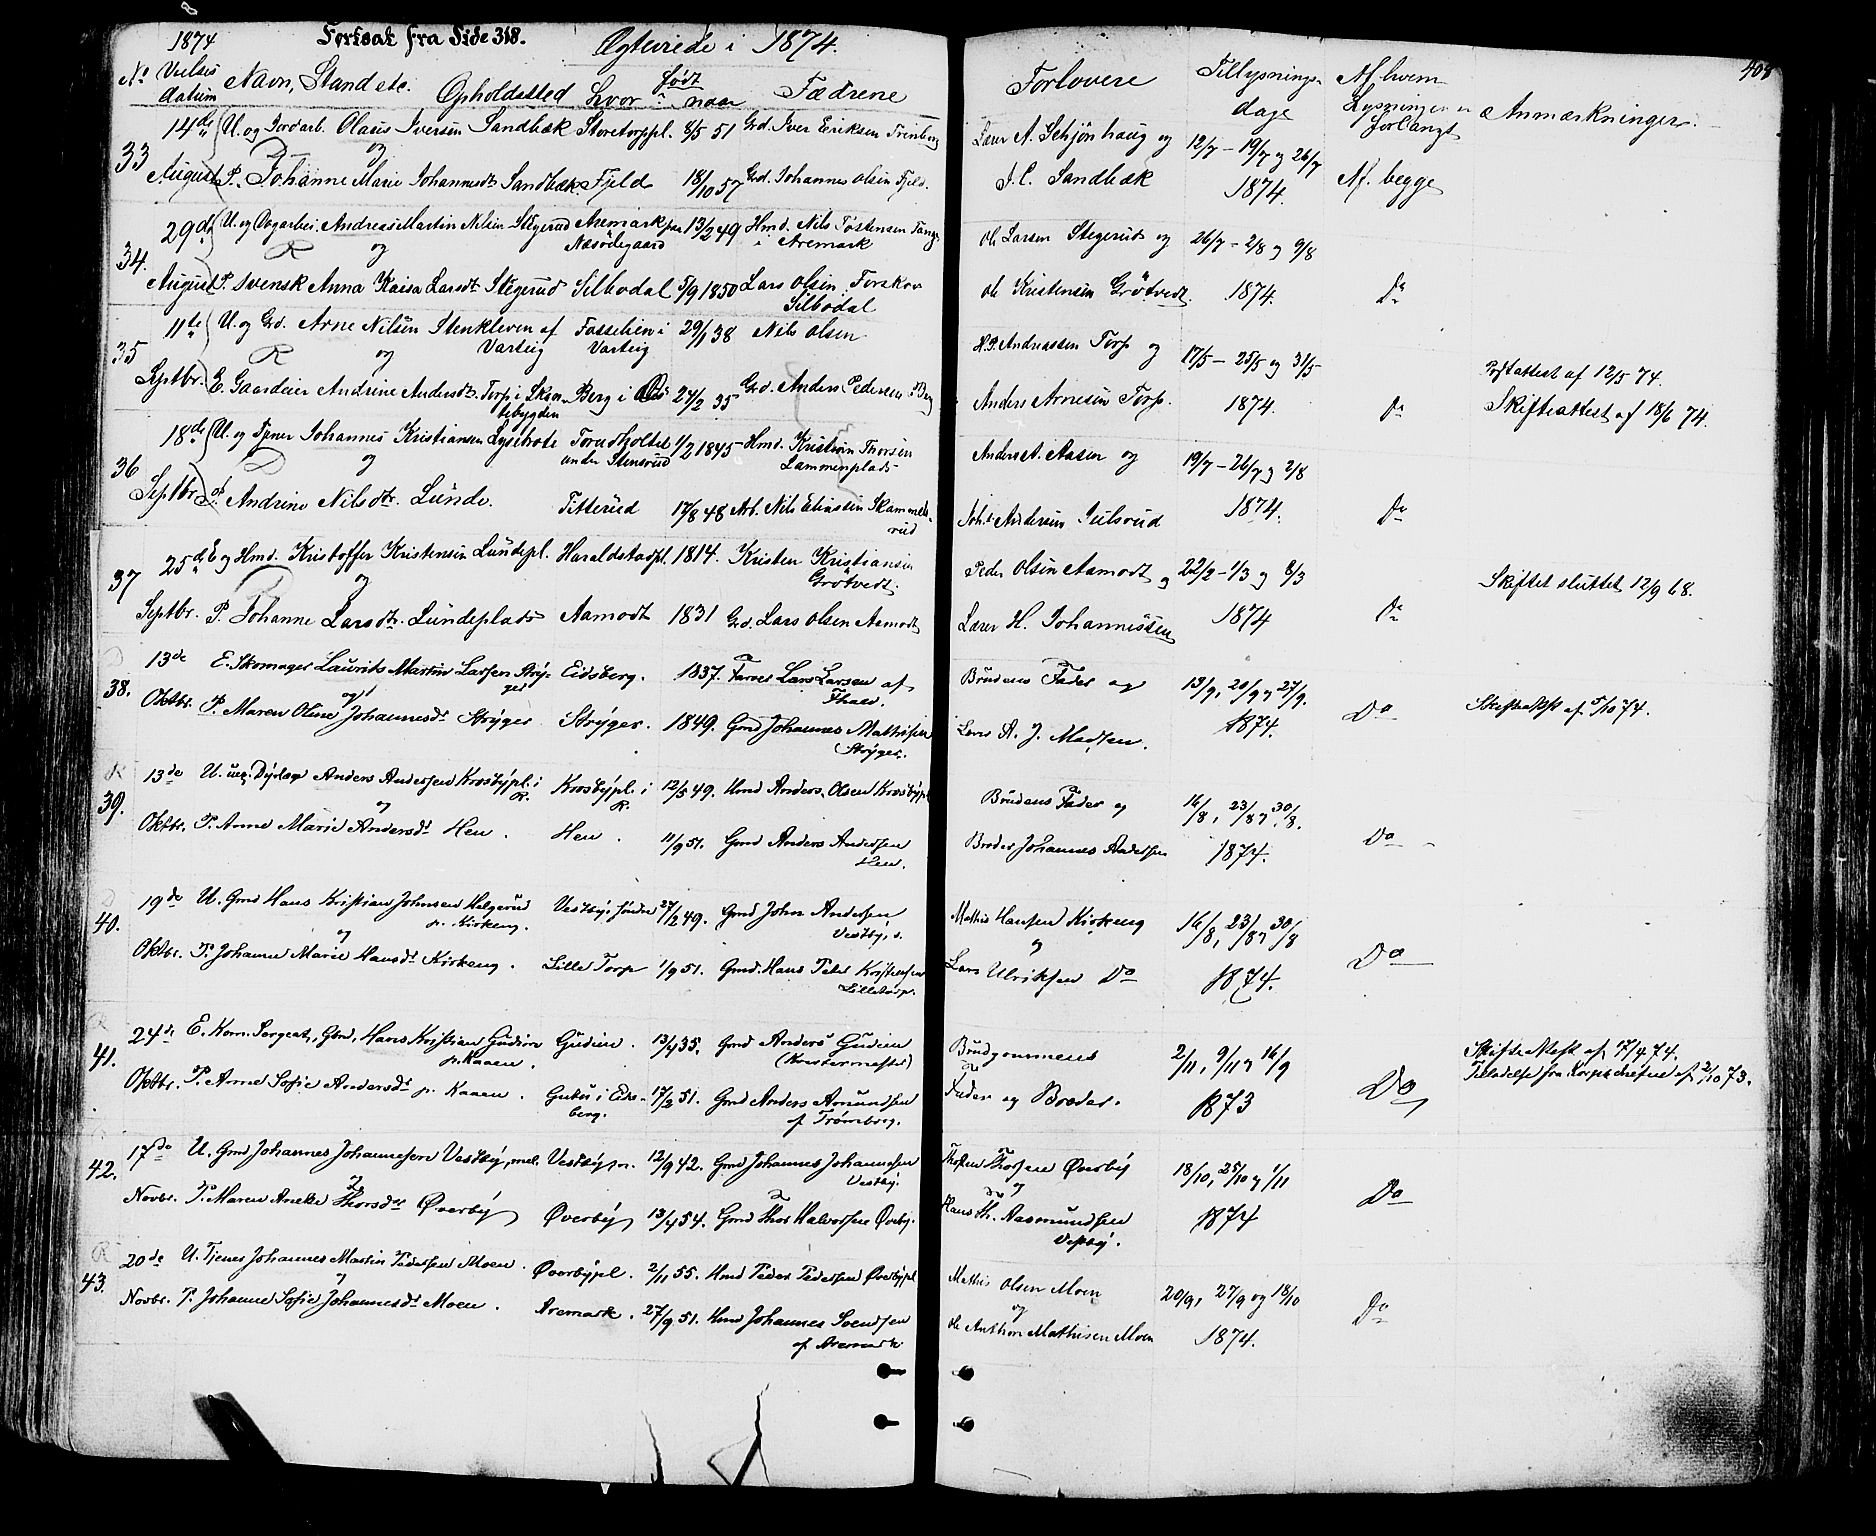 1874 Fortsat fra Side 318. Ægteviede i 1874.
No Vielses datum Navn, Stand etc. Opholdssted født hvor naar Fædrene
33 14de August U. og Jordarb. Olaus Iversen Sandbæk Storetorppl. 8/5 51 Grd. Iver Eriksen
og
P. Johanne Marie Johannesdt Sandbæk Fjeld 18/10 57 Grd. Johannes Olsen Fjeld.
34. 29de August U. og Andreas Martin Nilsen Stegerud Aremark 13/2 49 Hmd. Nils Tostensen
og Næsödegaard i Aremark
P. Svensk Anna Kaisa Larsdt Stegerud Silbodal 5/9 1850 Lars Olsen, Forskov
Silbodal
35 11te Septbr. U. og Grd. Arne Nilsen Stenkleven af Fosselien i 29/1 38 Nils Olsen
og Varteig Varteig
E. Gaardeier Andrine Andersdt Torp i Skan- Berg i 27/2 35 Grd. Anders Pedersen Berg
tebygden
36 18de Septbr. U. og Tjener Johannes Kristiansen Lysebrote Torudholtet 1/2 1845 Hmd. Kristian Thorsen
og under Stensrud Lammenplads
P. Andrine Nilsdtr. Lunde. Titterud 17/8 48 Arb. Nils Eliassen Skammels-
rud
37 25de Septbr. E. og Hmd. Kristoffer Kristensen Lundepl. Haraldstadpl. 1814. Kristen Kristiansen
og Grötvedt.
P. Johanne Larsdtr. Lundeplads Aamodt 1831 Grd. Lars Olsen Aamodt
38. 13de Oktbr. E. Skomager Laurits Martin Larsen Stry- Eidsberg. 1837. Farver Lars Larsen af
og ger Thaer.
P. Maren Oline Johannesdr Strÿger Strÿger. 1849. Gmd Johannes Mathisen
Strÿger.
39. 13de Oktbr. U. Dyrlæge Anders Andersen Krosbÿpl. i Krosbÿpl. i 12/5 49. Hmd Anders Olsen Krosbÿpl
og R. R.
P. Anne Marie Andersdr Hen. Hen. 11/9 51. Gmd Anders Andersen
Hen.
40. 19de Oktbr. U. Gmd Hans Kristian Johnsen Helgerud Vestby, søndre 27/2 49. Gmd John Andersen
og n. Kirkeng. Vestby, s.
P. Johanne Marie Hansdr Kirkeng. Lille Torp 1/9 51. Gmd. Hans Peter Kristensen
Lilletorp.
41. 24de Oktbr. E. Korn. Sergeat, Gbrd, Hans Kristian Gudim Gudim. 13/4 35. Gmd Anders Gudim
n. Kaaen.
P. Anne Sofie Andersdr n. Kaaen. i Eids- 17/2 51. Gmd Anders Amundsen
berg. af Trømborg.
42. 17de Novbr. U. Gmd Johannes Johannesen Vestby, mel. Vestby, m. 12/9 42. Gmd Johannes Johannesen
og Vestby.
P. Maren Aneke Thorsdr Øverbÿ Øverbÿ 13/4 54. Gmd Thor Halvorsen Øverby.
43. 20de Novbr. U. Tjener Johannes Martin Pedersen Moen. Øverbÿpl. 2/11 55. Hmd Peder Pedersen Øverbÿpl
og
P. Johanne Sofie Johannesdr Moen. Aremark. 27/9 51. Hmd Johannes Svendsen
af Aremark
Forlovere Tillysnings- dage Af hvem Lysningen er forlangt Anmærkninger.
Lærer A. Schjönhaug og 12/7 - 19/7 og 26/7
J. C. Sandbæk 1874. Af begge
Ole Larsen Stegerud og 26/7 - 2/8 og 9/8
Ole Kristensen Grötvedt. 1874. Do
H. P. Andreassen Torp og 17/5 - 25/5 og 31/5 attest af 12/5 74.
Anders Arnesen Torp. 1874. Do Skifteattest af 18/6 74.
Anders A. Aasen og 19/7 - 26/7 og 2/8
Johs. Andersen Julsrud 1874. Do
Peder Olsen Aamodt og 22/2 - 1/3 og 8/3 Skiftet sluttet 12/9 68.
Lærer H. Johannessen 1874 Do
Brudens Fader og 13/9, 20/9 og 27/9. Skifteattest af 5/10 74.
Lærer A. J. Madsen. 1874. Do
Brudens Fader og 16/8, 23/8 og 30/8.
Broder Johannes Andersen 1874. Do
Mathis Hansen Kirkeng 16/8, 23/8 og 30/8
og
Lars Ulriksen Do 1874. Do
Brudgommens 2/11, 9/11 og 16/9 Skifte Attest af 17/4 74.
Fader og Broder. 1873 Do Tilladelse fra Korpschefen af 2/10 73.
Thosten Thorsen Øverbÿ 18/10, 25/10 og 1/11
og
Hans Th. Aasmundsen 1874 Do
Vestby.
Mathis Olsen Moen 20/9, 27/9 og 18/10
og
Ole Anthon Mathisen Moen 1874. Do